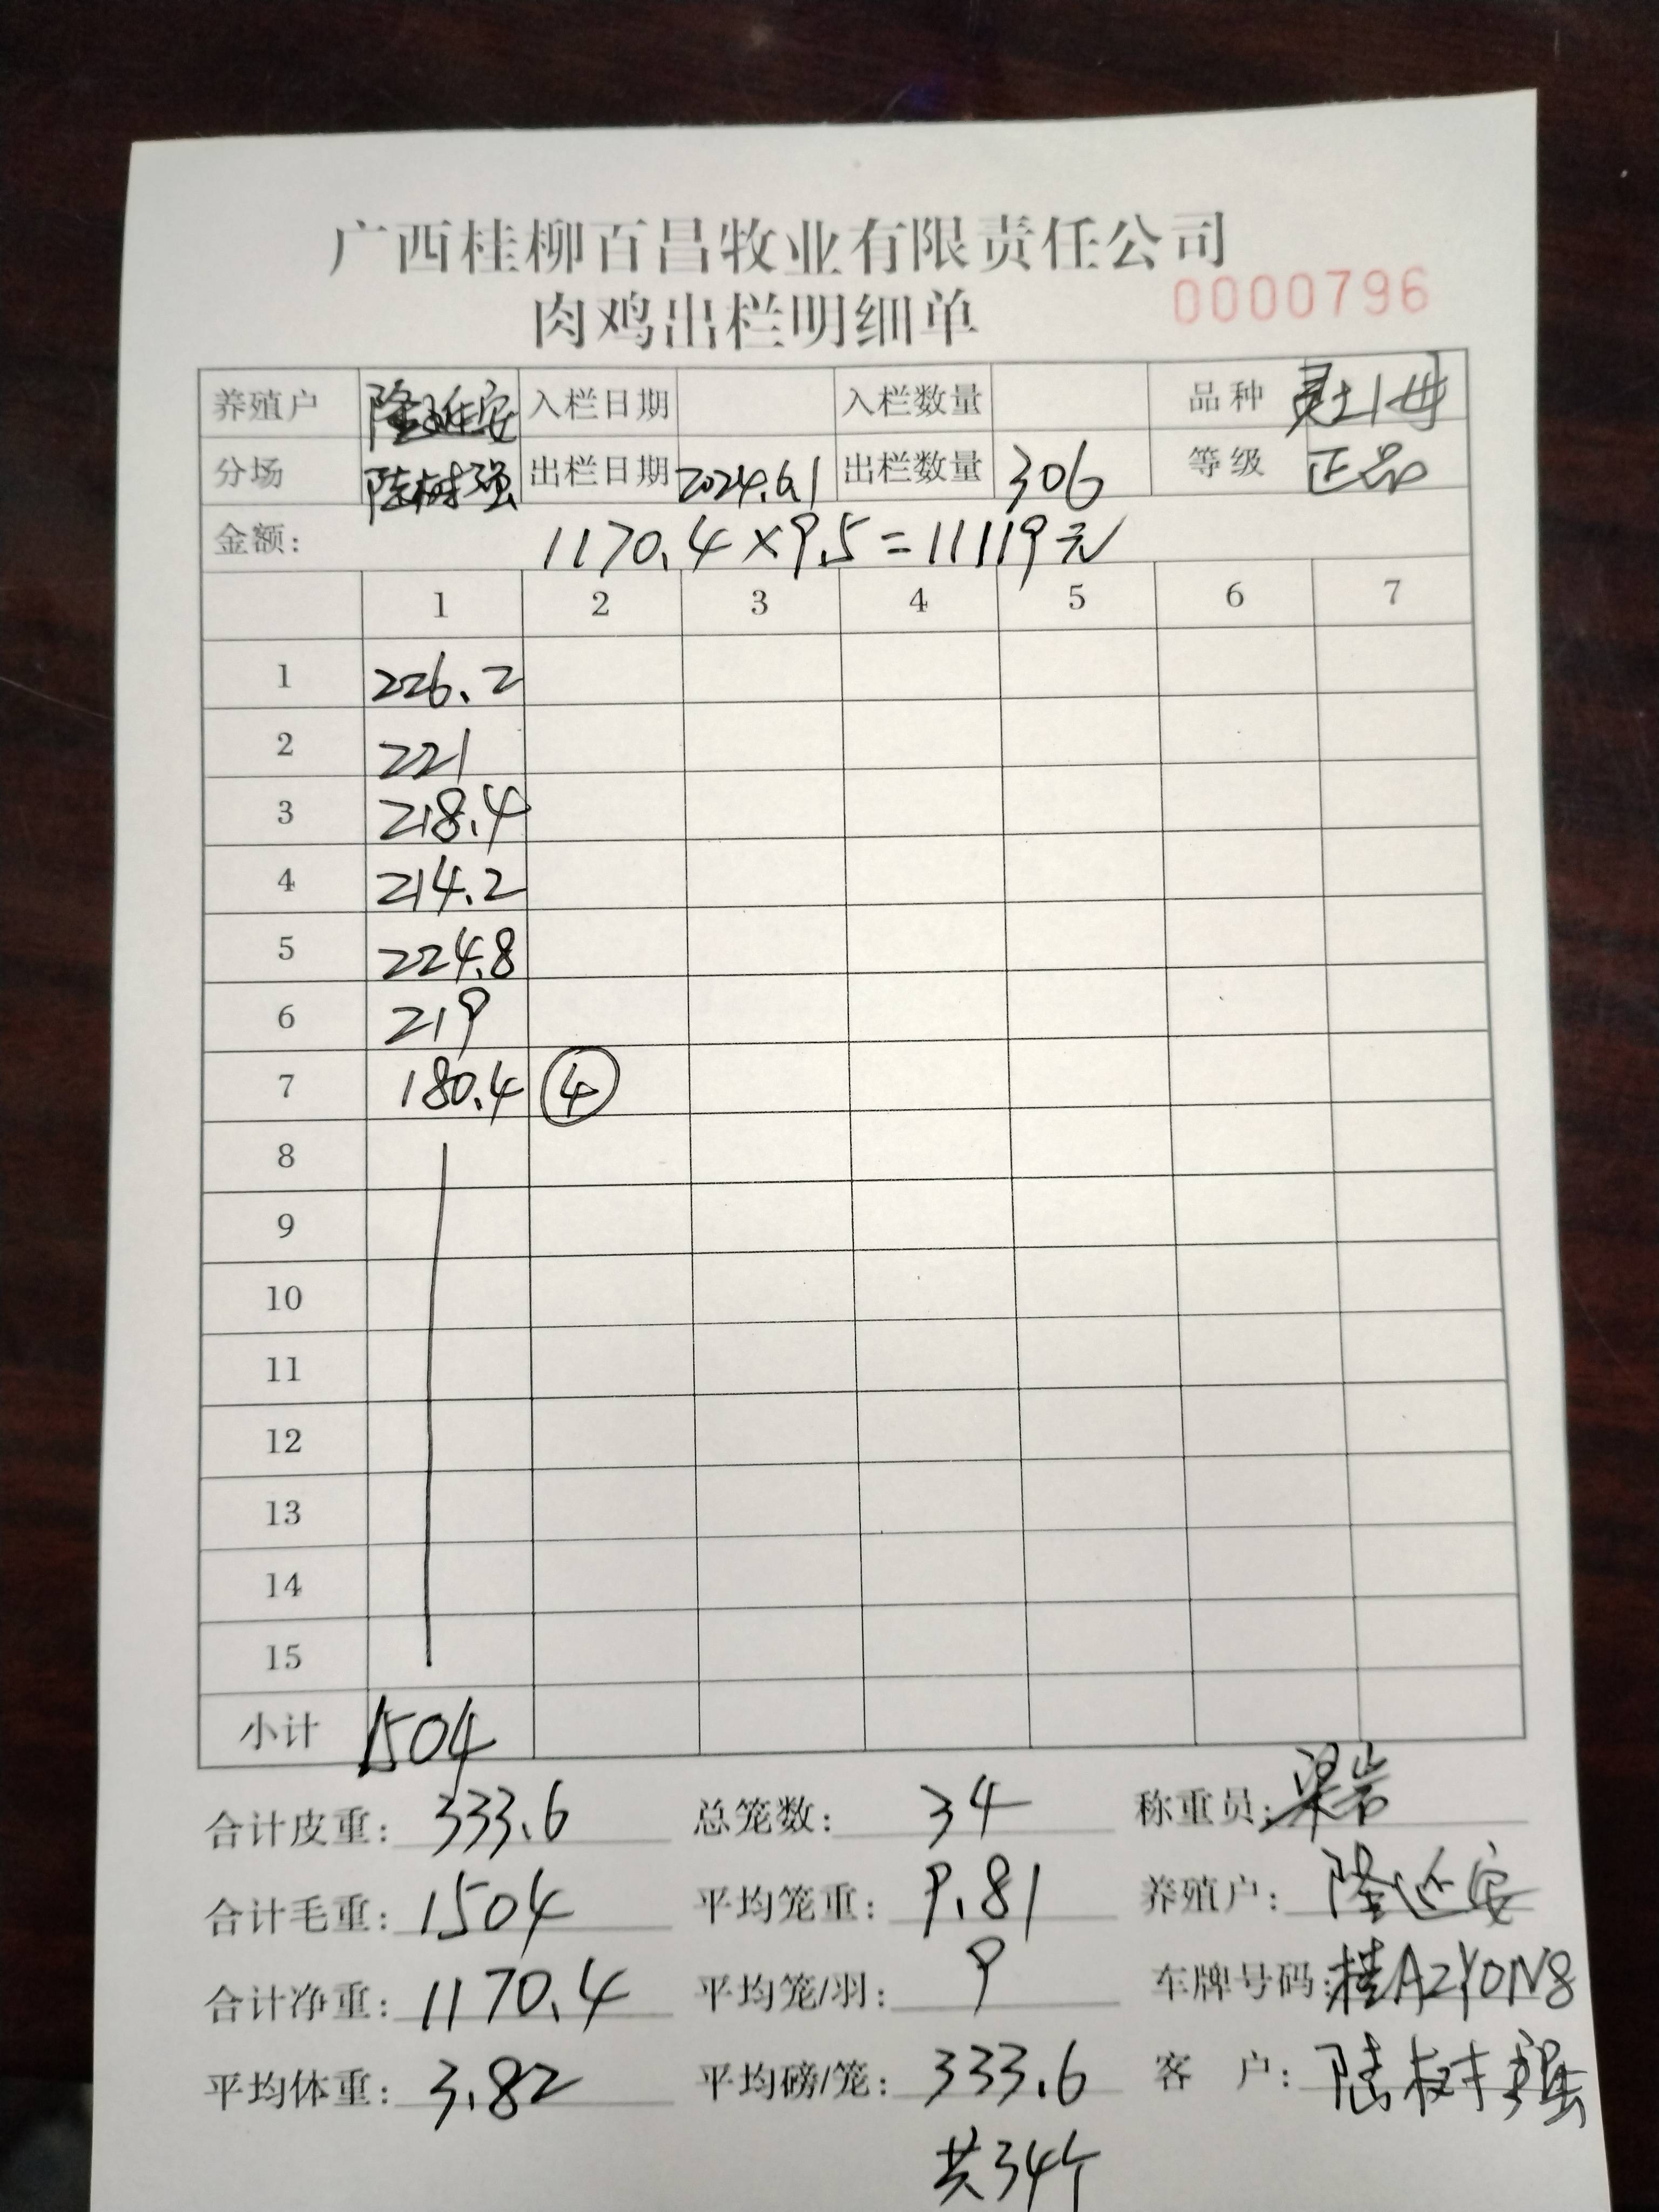 广西桂柳百昌牧业有限责任公司
肉鸡出栏明细单 0000796
养殖户 隆延安 入栏日期 入栏数量 品种 灵土1母
分场 陆树强 出栏日期 2024.6.1 出栏数量 306 等级 正品
金额: 1170.4×9.5=11119元
1 2 3 4 5 6 7
1 226.2
2 221
3 218.4
4 214.2
5 224.8
6 219
7 180.4 ④
8
9
10
11
12
13
14
15
小计 1504
合计皮重: 333.6 总笼数: 34 称重员: 梁岩
合计毛重: 1504 平均笼重: 9.81 养殖户: 隆延安
合计净重: 1170.4 平均笼/羽: 9 车牌号码: 桂A2Y0N8
平均体重: 3.82 平均磅/笼: 333.6 客户: 陆树强
共34个